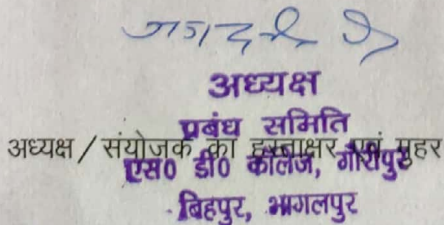 अध्यक्ष
प्रबंध समिति
अध्यक्ष / संयोजक का हस्ताक्षर एवं मुहर
एस0 डी0 कॉलेज, गौरीपुर
बिहपुर, भागलपुर